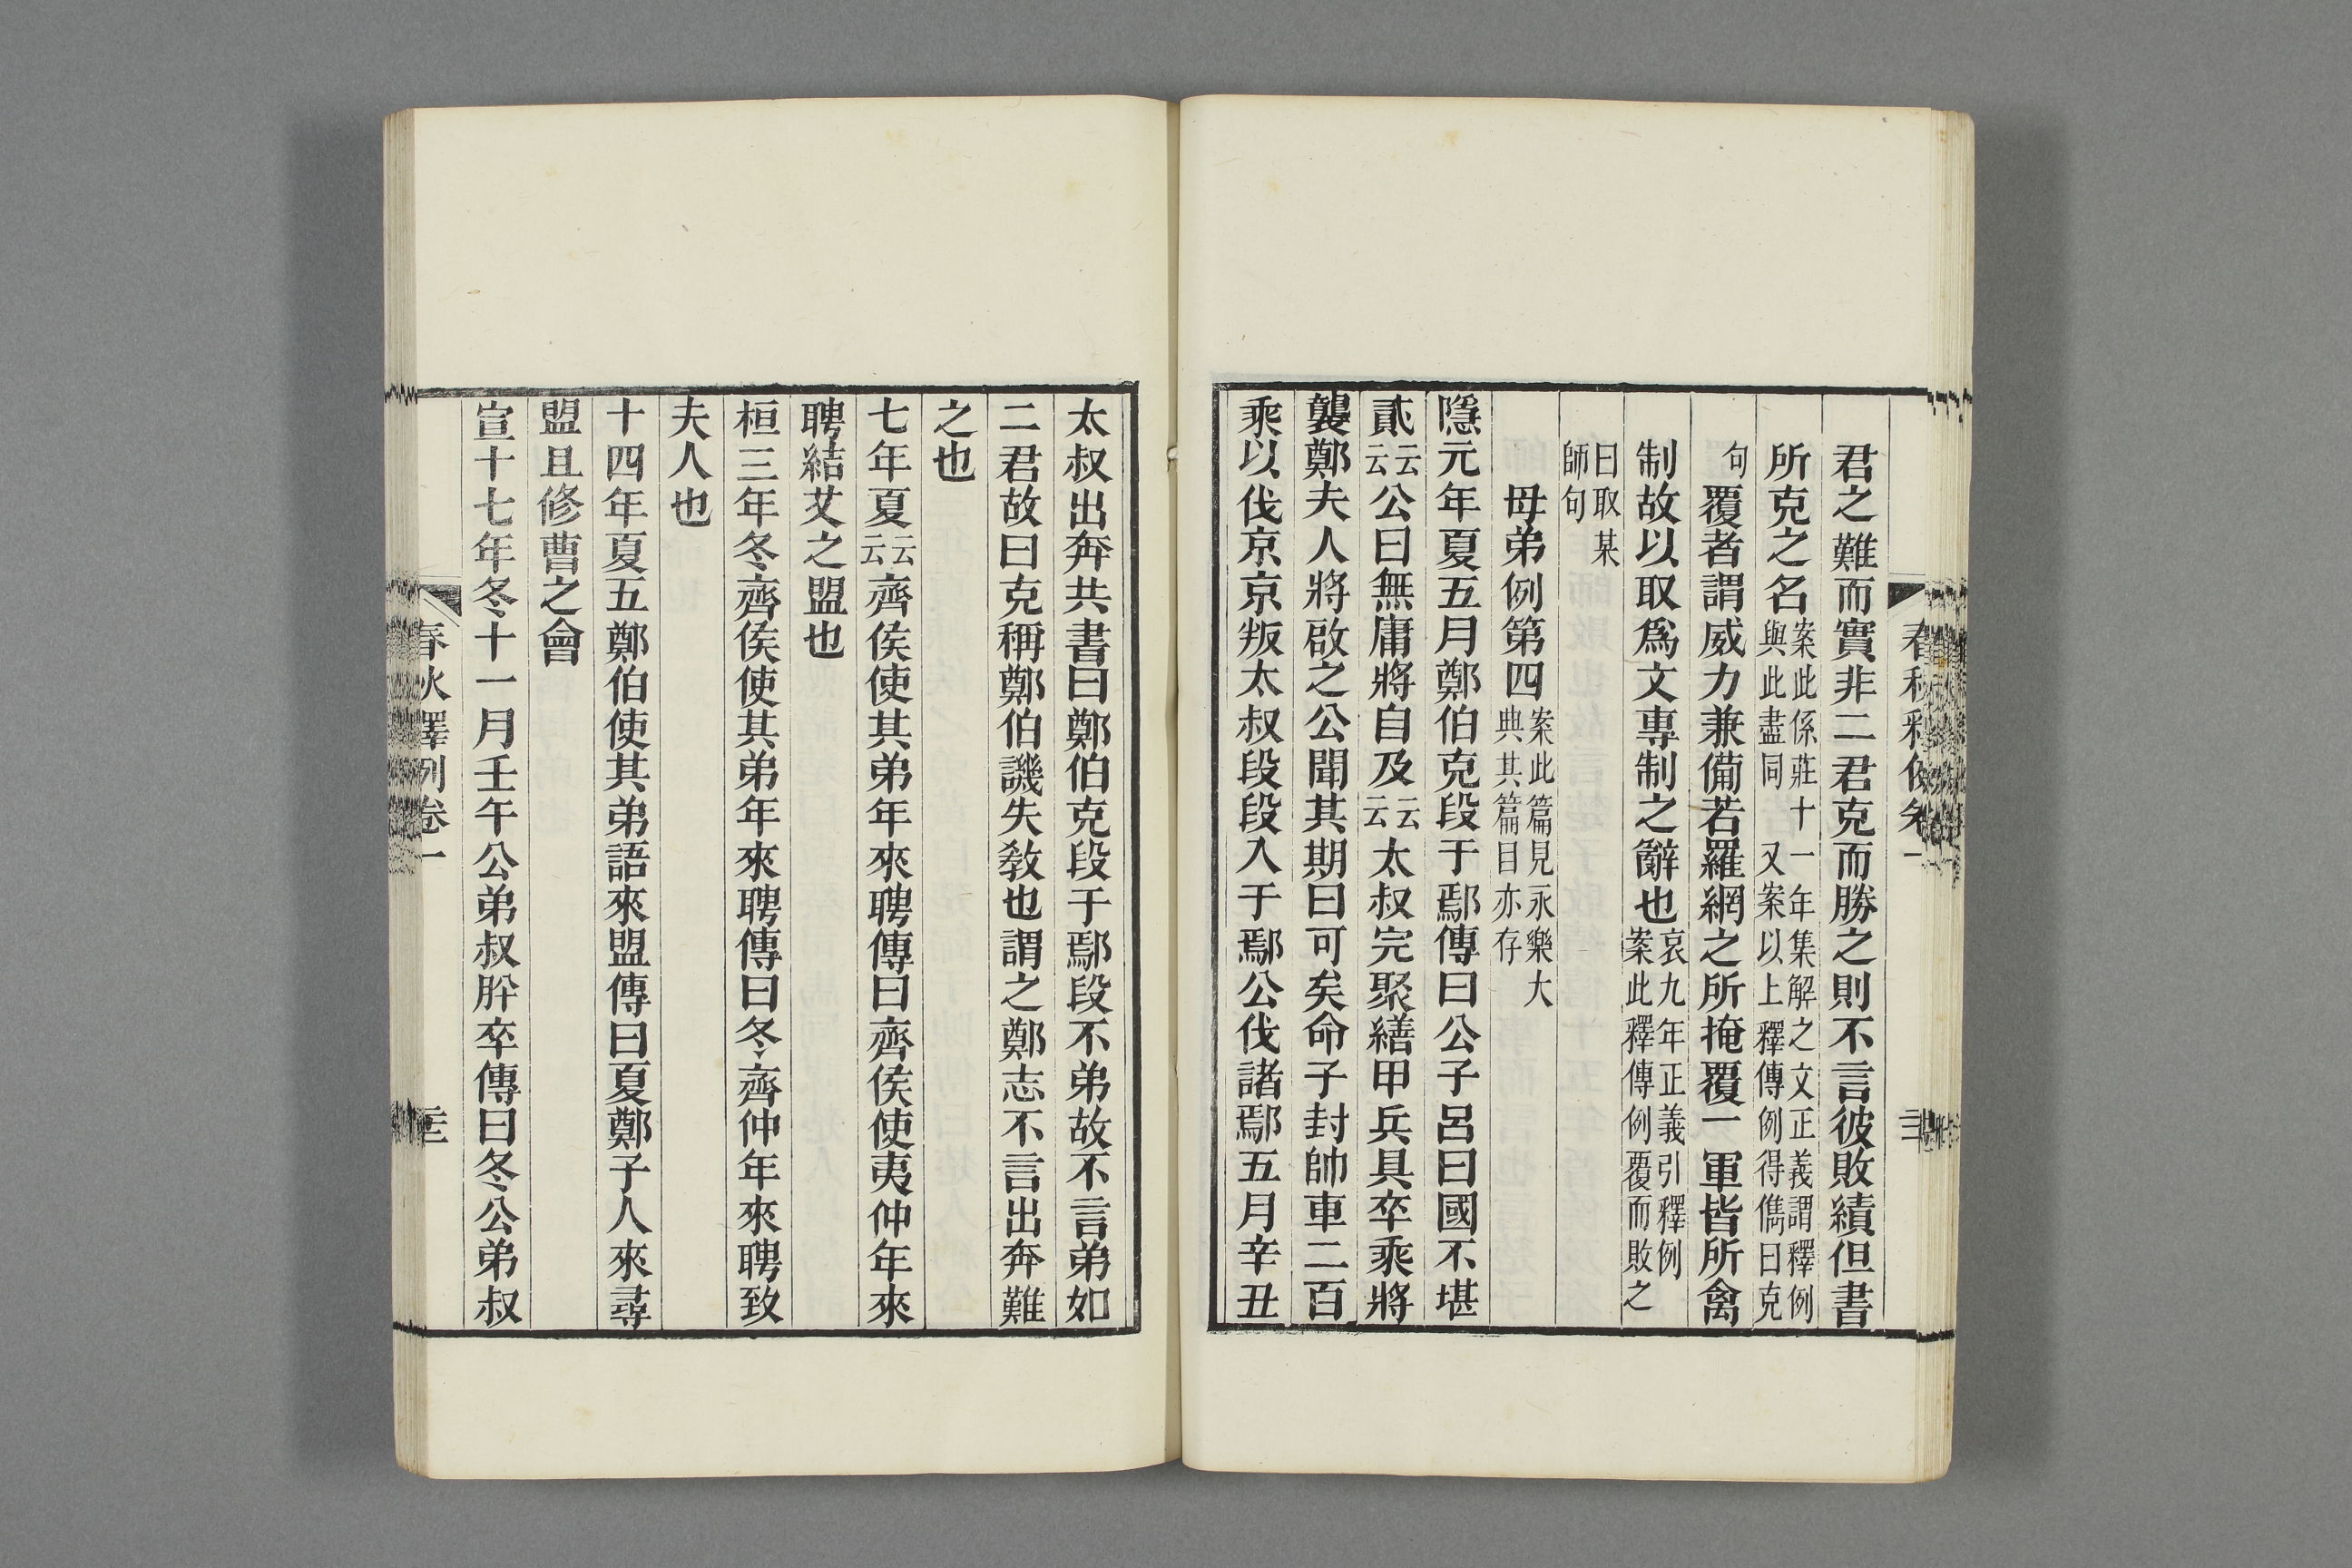 君之難而實非二君克而勝之則不言彼敗績但書
所克之名案此係莊十一年集解之文正義謂釋例與此盡同 又案以上釋傳例得儁曰克
句覆者謂威力兼備若羅網之所掩覆一軍皆所禽
制故以取爲文專制之辭也哀九年正義引釋例案此釋傳例覆而敗之
曰取某師句
母弟例第四案此篇見永樂大典其篇目亦存
隱元年夏五月鄭伯克段于鄢傳曰公子呂曰國不堪
貳云云公曰無庸將自及云云太叔完聚繕甲兵具卒乘將
襲鄭夫人將啟之公聞其期曰可矣命子封帥車二百
乘以伐京京叛太叔段段入于鄢公伐諸鄢五月辛丑
太叔出奔共書曰鄭伯克段于鄢段不弟故不言弟如
二君故曰克稱鄭伯譏失教也謂之鄭志不言出奔難
之也
七年夏云云齊侯使其弟年來聘傳曰齊侯使夷仲年來
聘結艾之盟也
桓三年冬齊侯使其弟年來聘傳曰冬齊仲年來聘致
夫人也
十四年夏五鄭伯使其弟語來盟傳曰夏鄭子人來尋
盟且修曹之會
宣十七年冬十一月壬午公弟叔肸卒傳曰冬公弟叔
春秋釋例卷一